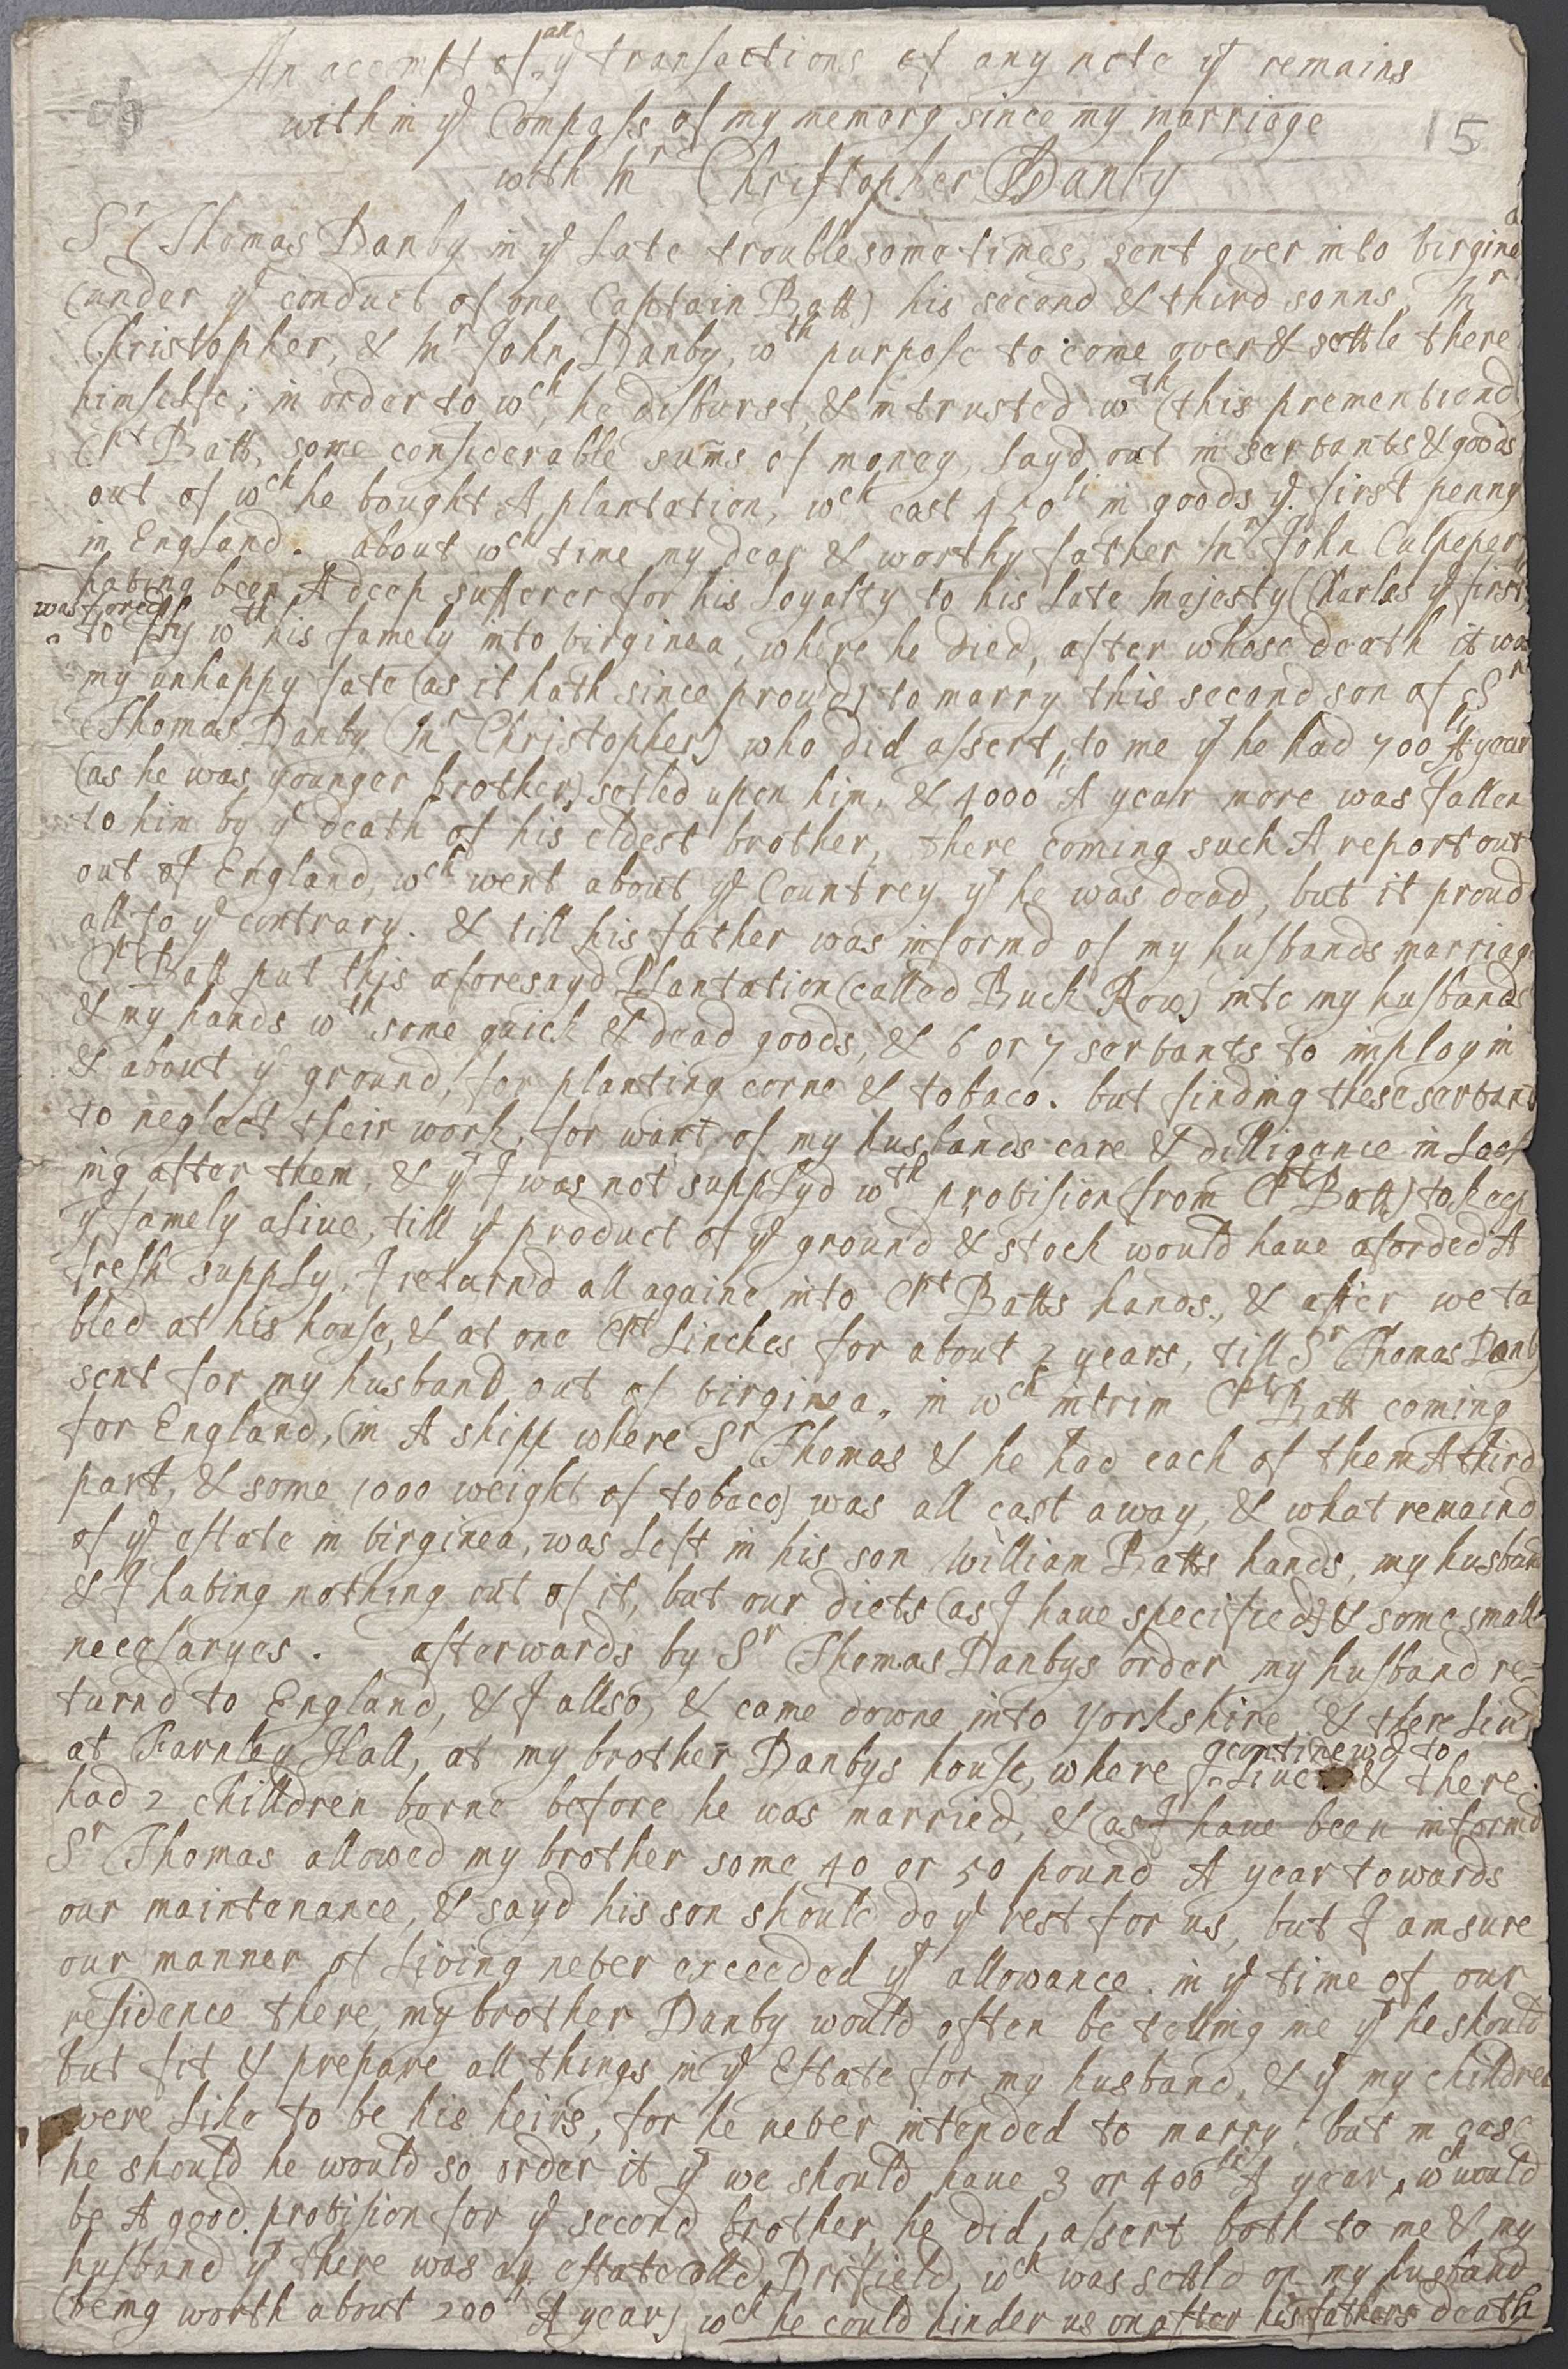 An accompt of an yᵉ transactions of any note yᵗ remains
within yᵉ Compass of my memory since my marriage
with Mʳ Christopher Danby
15
Sʳ Thomas Danby in yᵉ late troublesome times, sent over into virginea
(under yᵉ conduct of one Captain Batt) his second & third sonns, Mʳ
Christopher, & Mʳ John Danby, wᵗʰ purpose to come over & settle there
himselfe; in order to wᶜʰ, he disburst, & intrusted wᵗʰ this prementiond
Cᵖᵗ Batt, some considerable sums of money, layd out in servants & goods
out of wᶜʰ he bought A plantation, wᶜʰ cost 450ˡⁱ in goods yᵉ first penny
in England. about wᶜʰ time my dear & worthy father Mʳ John Culpeper
having been A deep sufferer for his Loyalty to his Late Majesty (Charles yᵉ first)
was forced to fly wᵗʰ his famely into virginea, where he died, after whose death it was
my unhappy fate (as it hath since proud) to marry this second son of Sʳ
Thomas Danby (Mʳ Christopher) who did assert, to me yᵗ he had 700ˡⁱ A year
(as he was younger brother) setled upon him, & 4000ˡⁱ A year more was fallen
to him by yᵉ death of his eldest brother, there coming such A report out
out of England, wᶜʰ went about yᵉ Countrey yᵗ he was dead, but it proud
all to yᵉ contrary. & till his father was informd of my husbands marriage
Cᵖᵗ Batt put this aforesayd Plantation (called Buck Row) into my husbands
& my hands wᵗʰ some quick & dead goods, & 6 or 7 servants to imploy in
& about yᵉ ground, for planting corne & tobaco. but finding these servants
to neglect their work, for want of my husbands care & dilligence in Look
ing after them, & yᵗ I was not supplyd wᵗʰ provision (from Cᵖᵗ Batt) to keep
yᵉ famely alive, till yᵉ product of yᵉ ground & stock would have aforded A
fresh supply, I returnd all againe into Cᵖᵗ Batts hands, & after we ta
bled at his house, & at one Cᵖᵗ Linches for about 2 years, till Sʳ Thomas Danby
sent for my husband out of virginea, in wᶜʰ intrim Cᵖᵗ Batt coming
for England, (in A shipp where Sʳ Thomas & he had each of them A third
part, & some 1000 weight of tobaco) was all cast away, & what remaind
of yᵉ estate in virginea, was Left in his son William Batts hands, my husband
& I having nothing out of it, but our diets (as I have specified) & some small
necesaryes. afterwards by Sʳ Thomas Danbys order my husband re=
turnd to England, & I allso, & came downe into Yorkshire, & there Liud
at Farnley Hall, at my brother Danbys house, where I continewd to Live & there
had 2 chilldren borne before he was married, & (as I have been informd
Sʳ Thomas allowed my brother some 40 or 50 pound A year towards
our maintenance, & sayd his son should do yᵉ rest for us, but I am sure
our manner of Living never exceeded yᵗ allowance. in yᵉ time of our
residence there, my brother Danby would often be telling me yᵗ he should
but fit & prepare all things in yᵉ Estate for my husband, & yᵗ my chilldren
were Like to be his heirs, for he never intended to marry, but in case
he should he would so order it yᵗ we should have 3 or 400ˡⁱ A year, wᶜʰ would
be A good provision for yᵉ second brother, he did, assert both to me & my
husband yᵗ there was an estate calld Drifield, wᶜʰ was setled on my husband
(being worth about 200ˡⁱ A year) wᶜʰ he could hinder us on after his fathers death